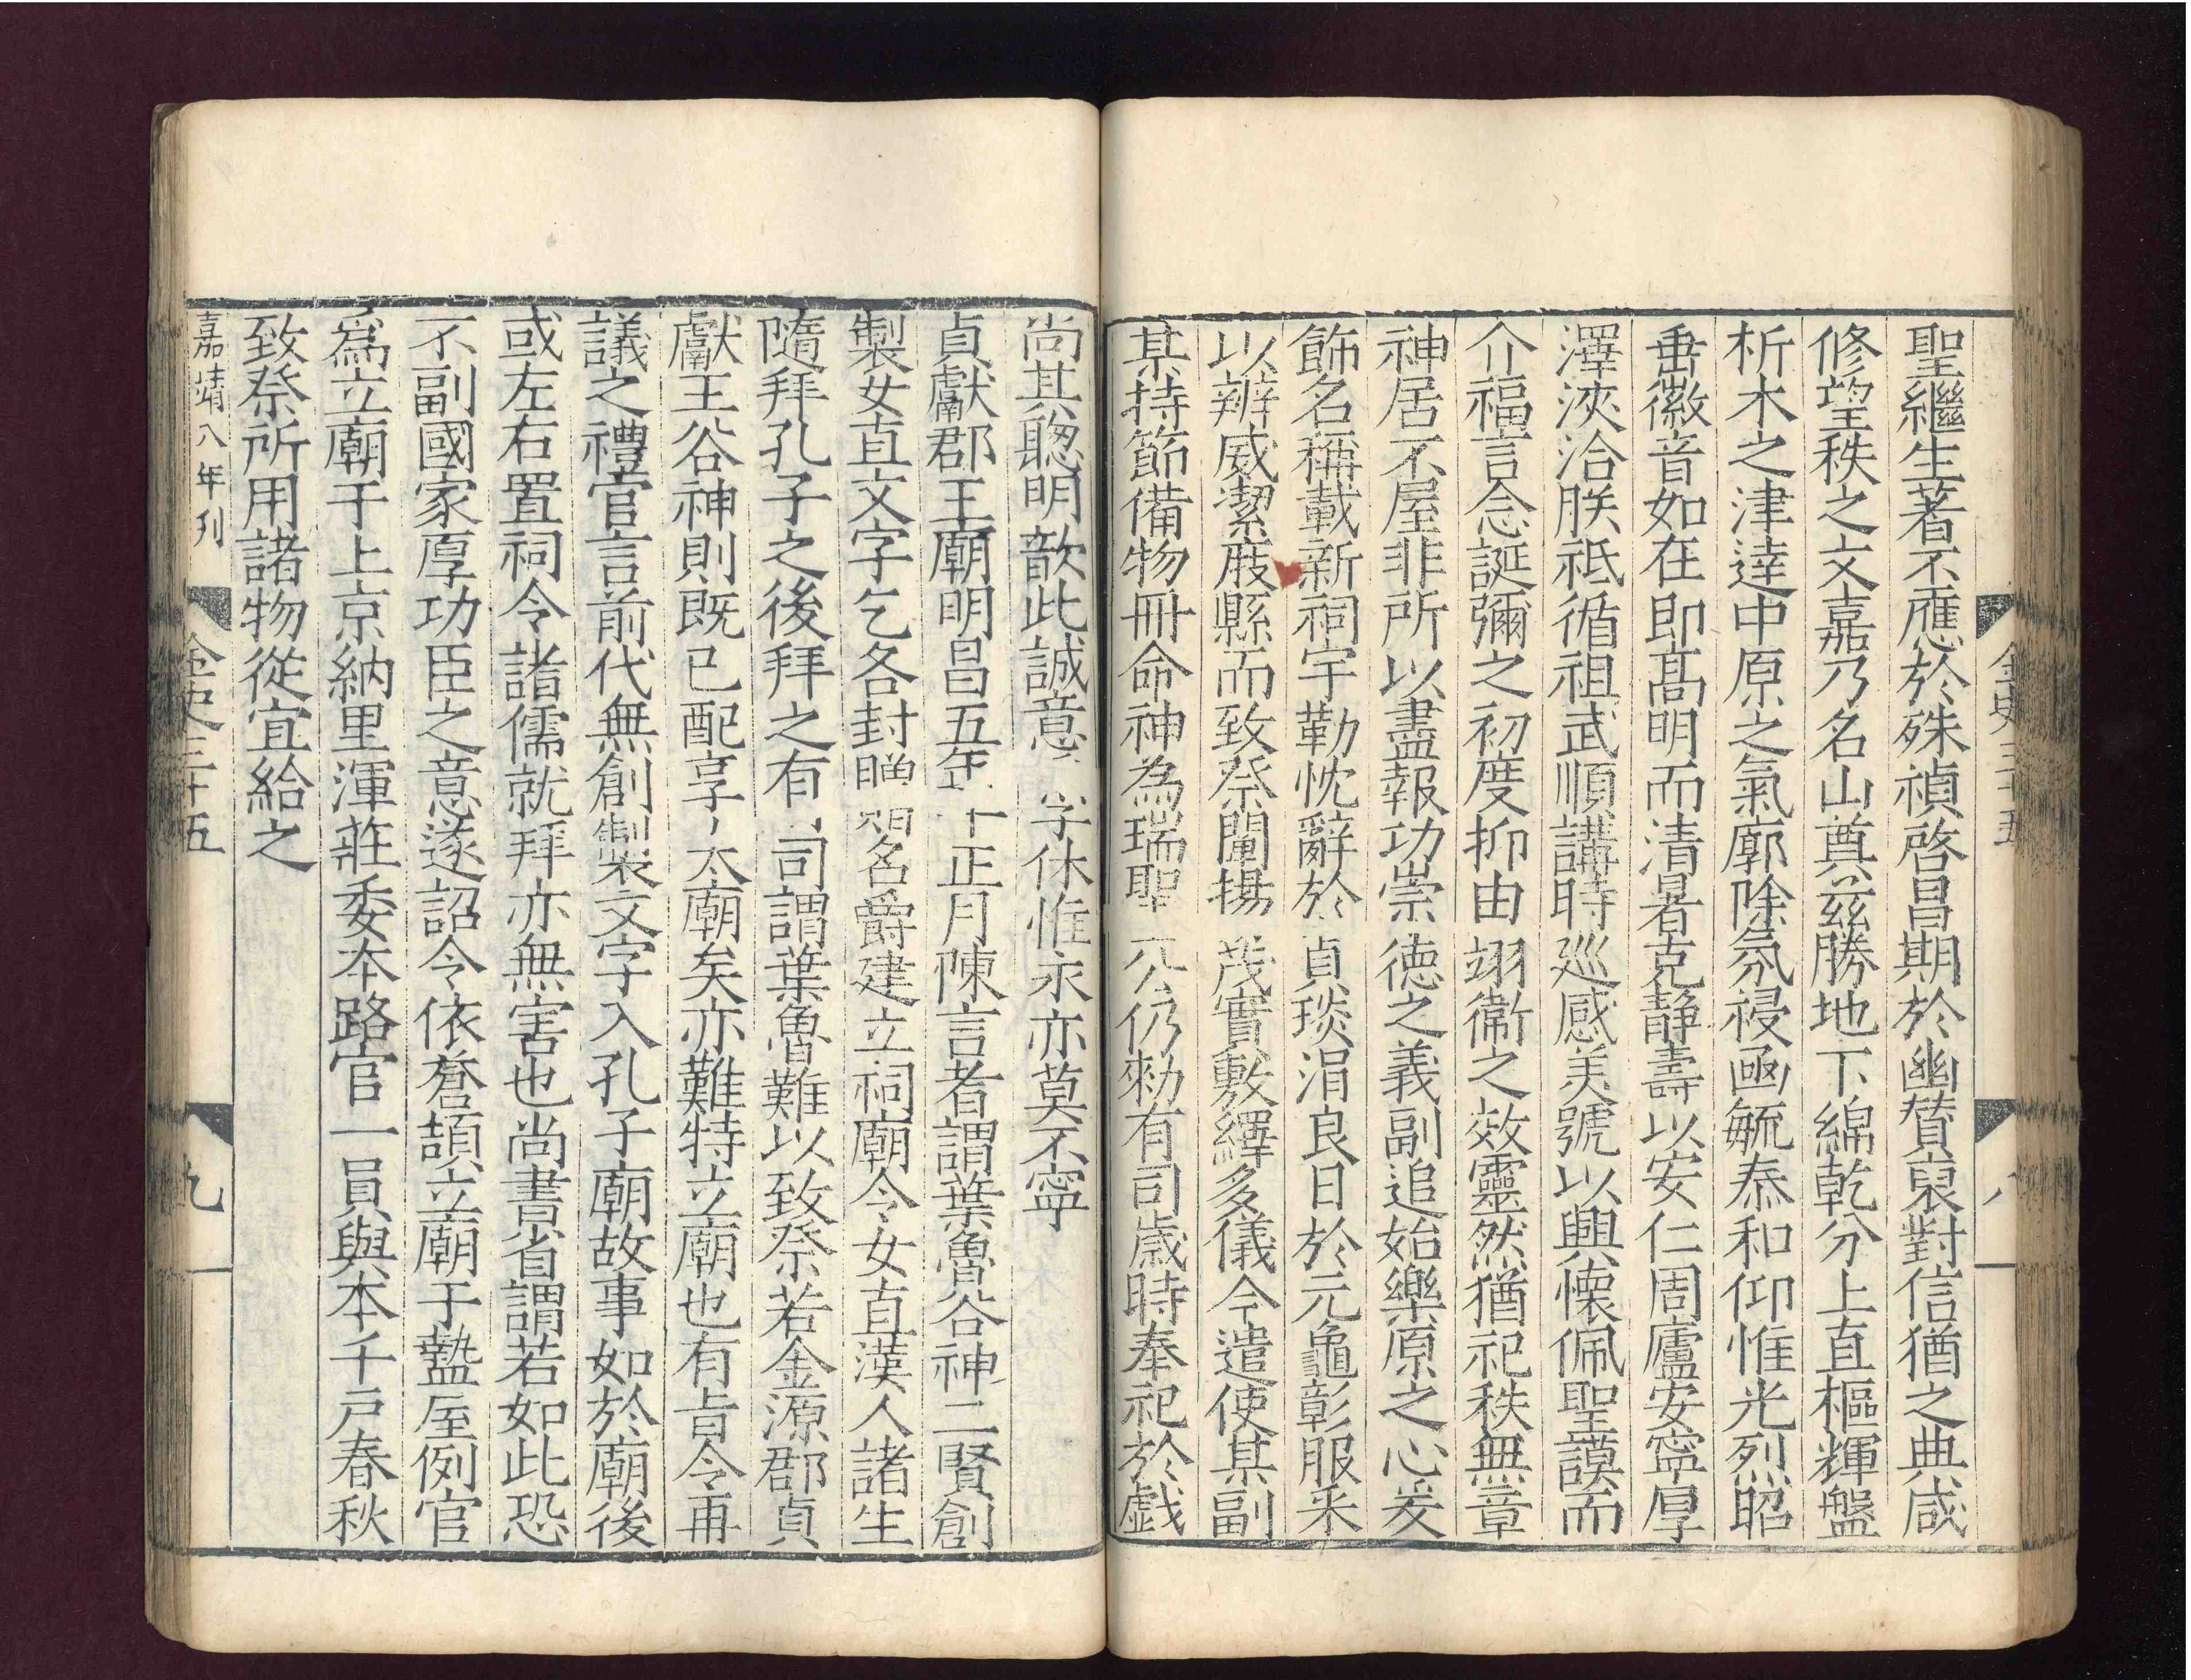 聖繼生著不應於殊禎啓昌期於幽贊裒對信猶之典咸
修望秩之文嘉乃名山奠兹勝地下綿乾分上直樞輝盤
析木之津達中原之氣廓除氛祲函毓泰和仰惟光烈昭
垂徽音如在即髙明而清暑克靜壽以安仁周廬安寧厚
澤浹洽朕祗循祖武順講時巡感美號以興懷佩聖謨而
介福言念誕彌之初度抑由翊衞之效靈然猶祀秩無章
神居不屋非所以盡報功崇德之義副追始樂原之心爰
飾名稱載新祠宇勒忱辭於貞琰涓良日於元龜彰服釆
以辨威潔庪縣而致祭闡揚茂實敷繹多儀今遣使某副
某持節備物冊命神為瑞聖公仍勑有司歳時奉祀於戯
尚其聦明歆此誠意字休惟永亦莫不寧
貞獻郡王廟明昌五年正月陳言者謂葉魯谷神二賢創
製女直文字乞各封贈名爵建立祠廟令女直漢人諸生
隨拜孔子之後拜之有司謂葉魯難以致祭若金源郡貞
獻王谷神則既已配享太廟矣亦難特立廟也有旨令再
議之禮官言前代無創製文字入孔子廟故事如於廟後
或左右置祠令諸儒就拜亦無害也尚書省謂若如此恐
不副國家厚功臣之意遂詔令依蒼頡立廟于盩厔例官
爲立廟于上京納里渾莊委本路官一員與本千戸春秋
致祭所用諸物從宜給之
嘉靖八年刋
金史三十五
九
金史三十五
八